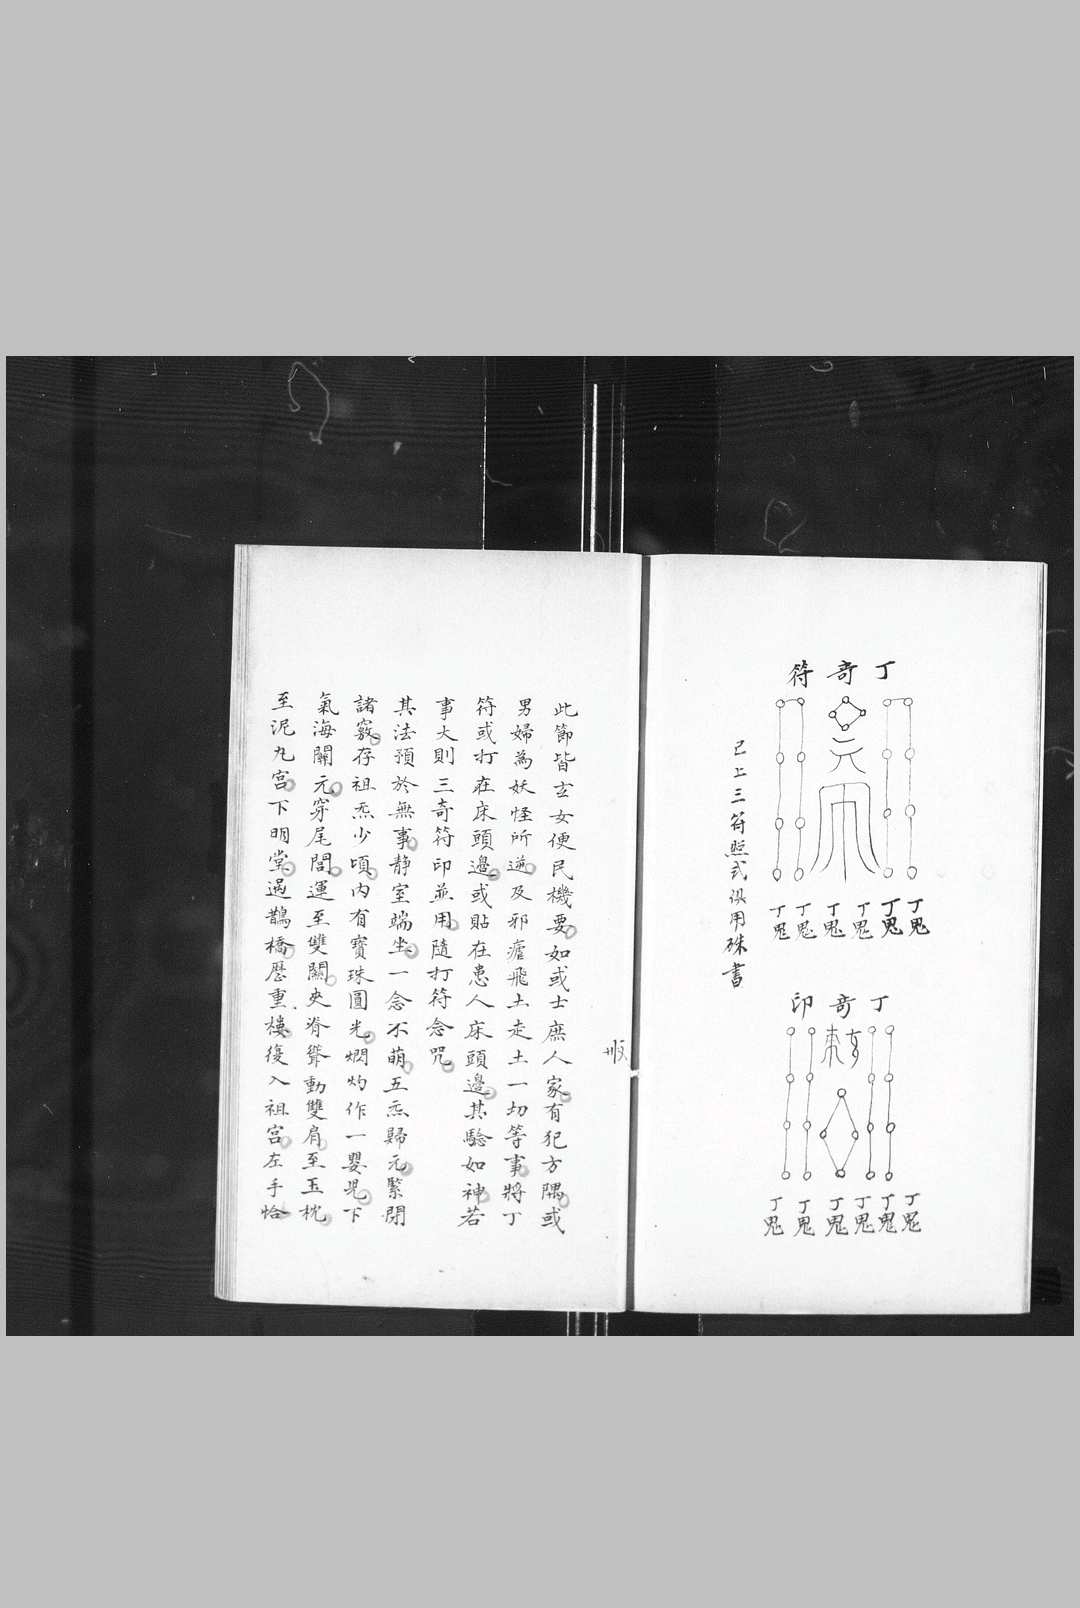 丁奇符
丁鬼 丁鬼 丁鬼 丁鬼 丁鬼 丁鬼
丁奇印
丁鬼 丁鬼 丁鬼 丁鬼 丁鬼 丁鬼
已上三符照式俱用硃書
此節皆玄女便民機要如或士庶人家有犯方隅或
男婦為妖怪所迷及邪瘧飛土走土一切等事將丁
符或打在床頭邊或貼在患人床頭邊其驗如神若
事大則三奇符印並用隨打符念咒
其法預於無事靜室端坐一念不萌五炁歸元緊閉
諸竅存祖炁少頃內有寶珠圓光燜灼作一嬰児下
氣海關元穿尾閭運至雙關夾脊聳動雙肩至玉枕
至泥九宮下明堂過鵲橋歷重樓復入祖宮左手恰